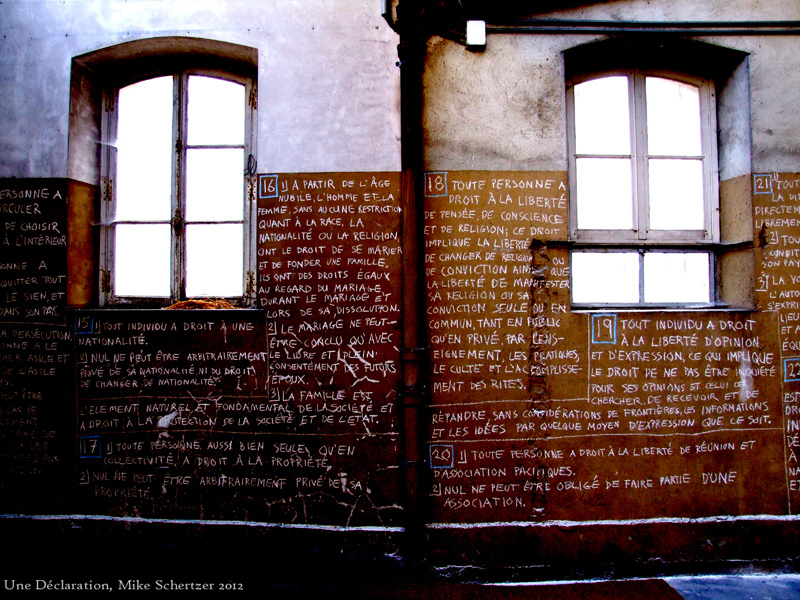 ERSONNE A
RCULER
DE CHOISIR
À L'INTÉRIEUR
ONNE A
QUITTER TOUT
LE SIEN, ET
DANS SON PAYS.
PERSÉCUTION,
CHER ASILE ET
DE L'ASILE
15 1) TOUT INDIVIDU A DROIT À UNE
NATIONALITÉ.
2) NUL NE PEUT ÊTRE ARBITRAIREMENT
PRIVÉ DE SA NATIONALITÉ, NI DU DROIT
DE CHANGER DE NATIONALITÉ.
16 1) A PARTIR DE L'ÂGE
NUBILE, L'HOMME ET LA
FEMME, SANS AUCUNE RESTRICTION
QUANT À LA RACE, LA
NATIONALITÉ OU LA RELIGION
ONT LE DROIT DE SE MARIER
ET DE FONDER UNE FAMILLE.
ILS ONT DES DROITS ÉGAUX
AU REGARD DU MARIAGE,
DURANT LE MARIAGE ET
LORS DE SA DISSOLUTION.
2) LE MARIAGE NE PEUT-
ÊTRE CONCLU QU'AVEC
LE LIBRE ET PLEIN
CONSENTEMENT DES FUTURS
ÉPOUX.
3) LA FAMILLE EST
L'ÉLEMENT NATUREL ET FONDAMENTAL DE LA SOCIÉTÉ ET
A DROIT À LA PROTECTION DE LA SOCIÉTÉ ET DE L'ÉTAT.
17 1) TOUTE PERSONNE, AUSSI BIEN SEULE QU'EN
COLLECTIVITÉ, A DROIT À LA PROPRIÉTÉ.
2) NUL NE PEUT ÊTRE ARBITRAIREMENT PRIVÉ DE SA
PROPRIÉTÉ.
18 TOUTE PERSONNE A
DROIT À LA LIBERTÉ
DE PENSÉE, DE CONSCIENCE
ET DE RELIGION; CE DROIT
IMPLIQUE LA LIBERTÉ
DE CHANGER DE RELIGION OU
DE CONVICTION AINSI QUE
LA LIBERTÉ DE MANIFESTER
SA RELIGION OU SA
CONVICTION SEULE OU EN
COMMUN, TANT EN PUBLIC
QU'EN PRIVÉ, PAR L'ENS-
EIGNEMENT, LES PRATIQUES,
LE CULTE ET L'ACCOMPLISSE-
MENT DES RITES.
19 TOUT INDIVIDU A DROIT
À LA LIBERTÉ D'OPINION
ET D'EXPRESSION, CE QUI IMPLIQUE
LE DROIT DE NE PAS ÊTRE INQUIÉTÉ
POUR SES OPINIONS ET CELUI DE
CHERCHER, DE RECEVOIR ET DE
RÉPANDRE, SANS CONSIDÉRATIONS DE FRONTIÈRES, LES INFORMATIONS
ET LES IDÉES PAR QUELQUE MOYEN D'EXPRESSION QUE CE SOIT.
20 1) TOUTE PERSONNE A DROIT À LA LIBERTÉ DE RÉUNION ET
D'ASSOCIATION PACIFIQUES.
2) NUL NE PEUT ÊTRE OBLIGÉ DE FAIRE PARTIE D'UNE
ASSOCIATION.
21 1) TOUT
LA DI
DIRECTEME
LIBREMENT
2) TOU
CONDIT
SON PAY
3) LA VO
L'AUTO
S'EXPRI
22
Une Déclaration, Mike Schertzer 2012